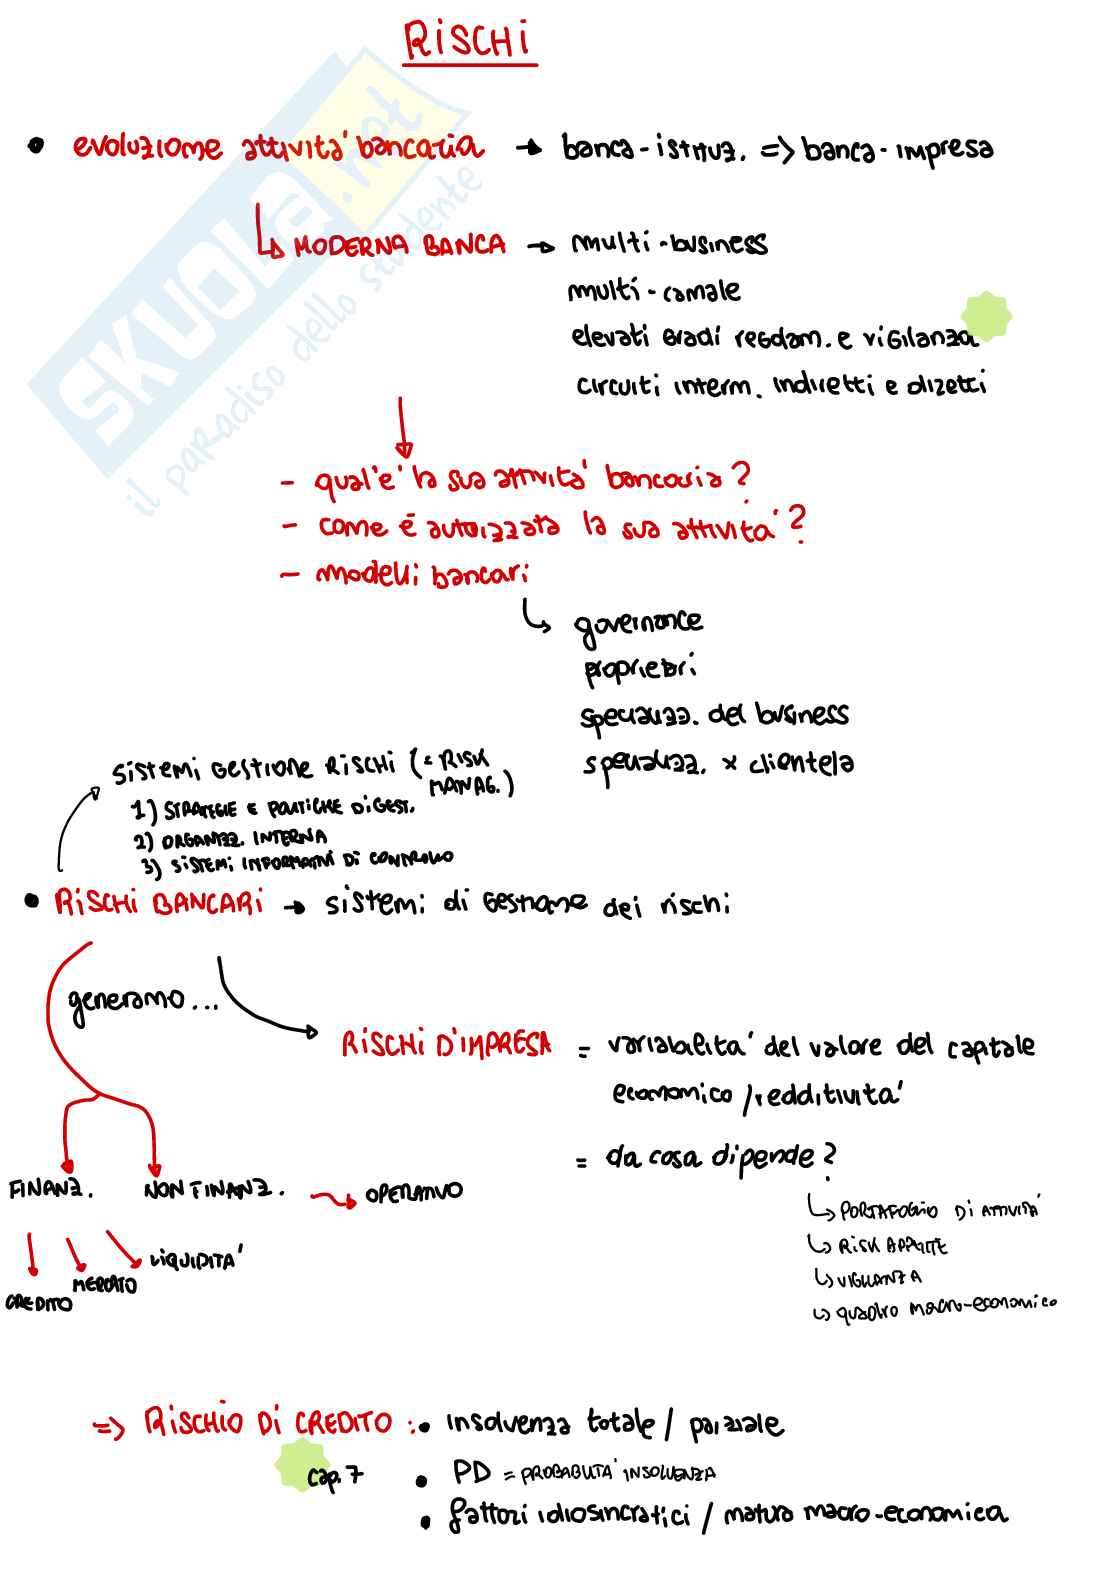 RISCHI
• evoluzione attività bancaria → banca-istituz. => banca-impresa
MODERNA BANCA → multi-business
multi-canale
elevati gradi regolam. e vigilanza
circuiti interm. indiretti e diretti
- qual'è la sua attività bancaria?
- come è autorizzata la sua attività?
- modelli bancari
governance
proprietari
specializz. del business
specializz. x clientela
SISTEMI GESTIONE RISCHI (= RISK MANAG.)
1) STRATEGIE E POLITICHE DI GEST.
2) ORGANIZZ. INTERNA
3) SISTEMI INFORMATIVI DI CONTROLLO
• RISCHI BANCARI → sistemi di gestione dei rischi
generano...
RISCHI D'IMPRESA = variabilità del valore del capitale
economico / redditività
= da cosa dipende?
FINANZ. NON FINANZ. → OPERATIVO
PORTAFOGLIO DI ATTIVITÀ
RISK APPETITE
VIGILANZA
quadro macro-economico
LIQUIDITÀ
MERCATO
CREDITO
=> RISCHIO DI CREDITO: • insolvenza totale / parziale
cap. 7 • PD = PROBABILITÀ INSOLVENZA
• fattori idiosincratici / natura macro-economica
SKUOLA.net
il paradiso dello studente